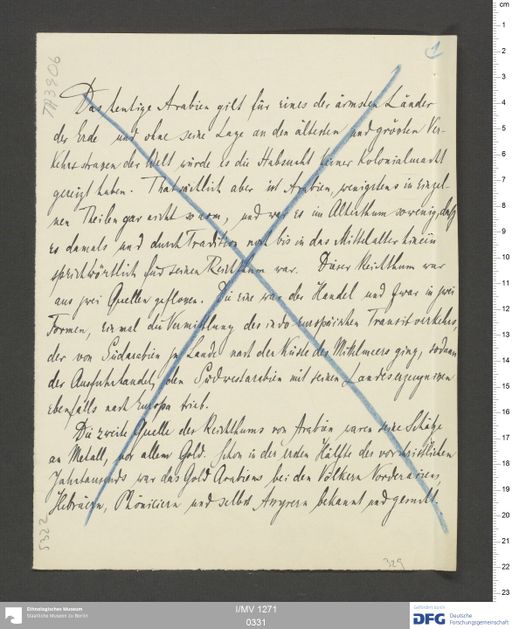 1
TA3906
Das heutige Arabien gilt für eines der ärmsten Länder
der Erde und ohne seine Lage an den ältesten und größten Ver-
kehrsstrassen der Welt würde es die Habsucht keiner Kolonialmacht
gereizt haben. Thatsächlich aber ist Arabien, wenigstens in einzel-
nen Theilen gar nicht so arm, und war es im Alterthum so wenig, daß
es damals und durch Tradition noch bis in das Mittelalter hinein
sprichwörtlich für seinen Reichthum war. Dieser Reichthum war
aus zwei Quellen geflossen. Die eine war der Handel und zwar in zwei
Formen, einmal die Vermittlung des indo-europäischen Transitverkehrs,
der von Südarabien zu Lande nach der Küste des Mittelmeers ging, sodann
der Ausfuhrhandel, den Südwestarabien mit seinen Landeserzeugnissen
ebenfalls nach Europa trieb.
Die zweite Quelle des Reichthums von Arabien waren seine Schätze
an Metall, vor allem Gold. Schon in der ersten Hälfte des vorchristlichen
Jahrtausends war das Gold Arabiens bei den Völkern Vorderasiens,
Hebräern, Phöniciern und selbst Assyrern bekannt und gesucht.
5322
329
cm
1
2
3
4
5
6
7
8
9
10
11
12
13
14
15
16
17
18
19
20
21
22
23
Ethnologisches Museum
Staatliche Museen zu Berlin
I/MV 1271
0331
Gefördert durch
DFG Deutsche
Forschungsgemeinschaft